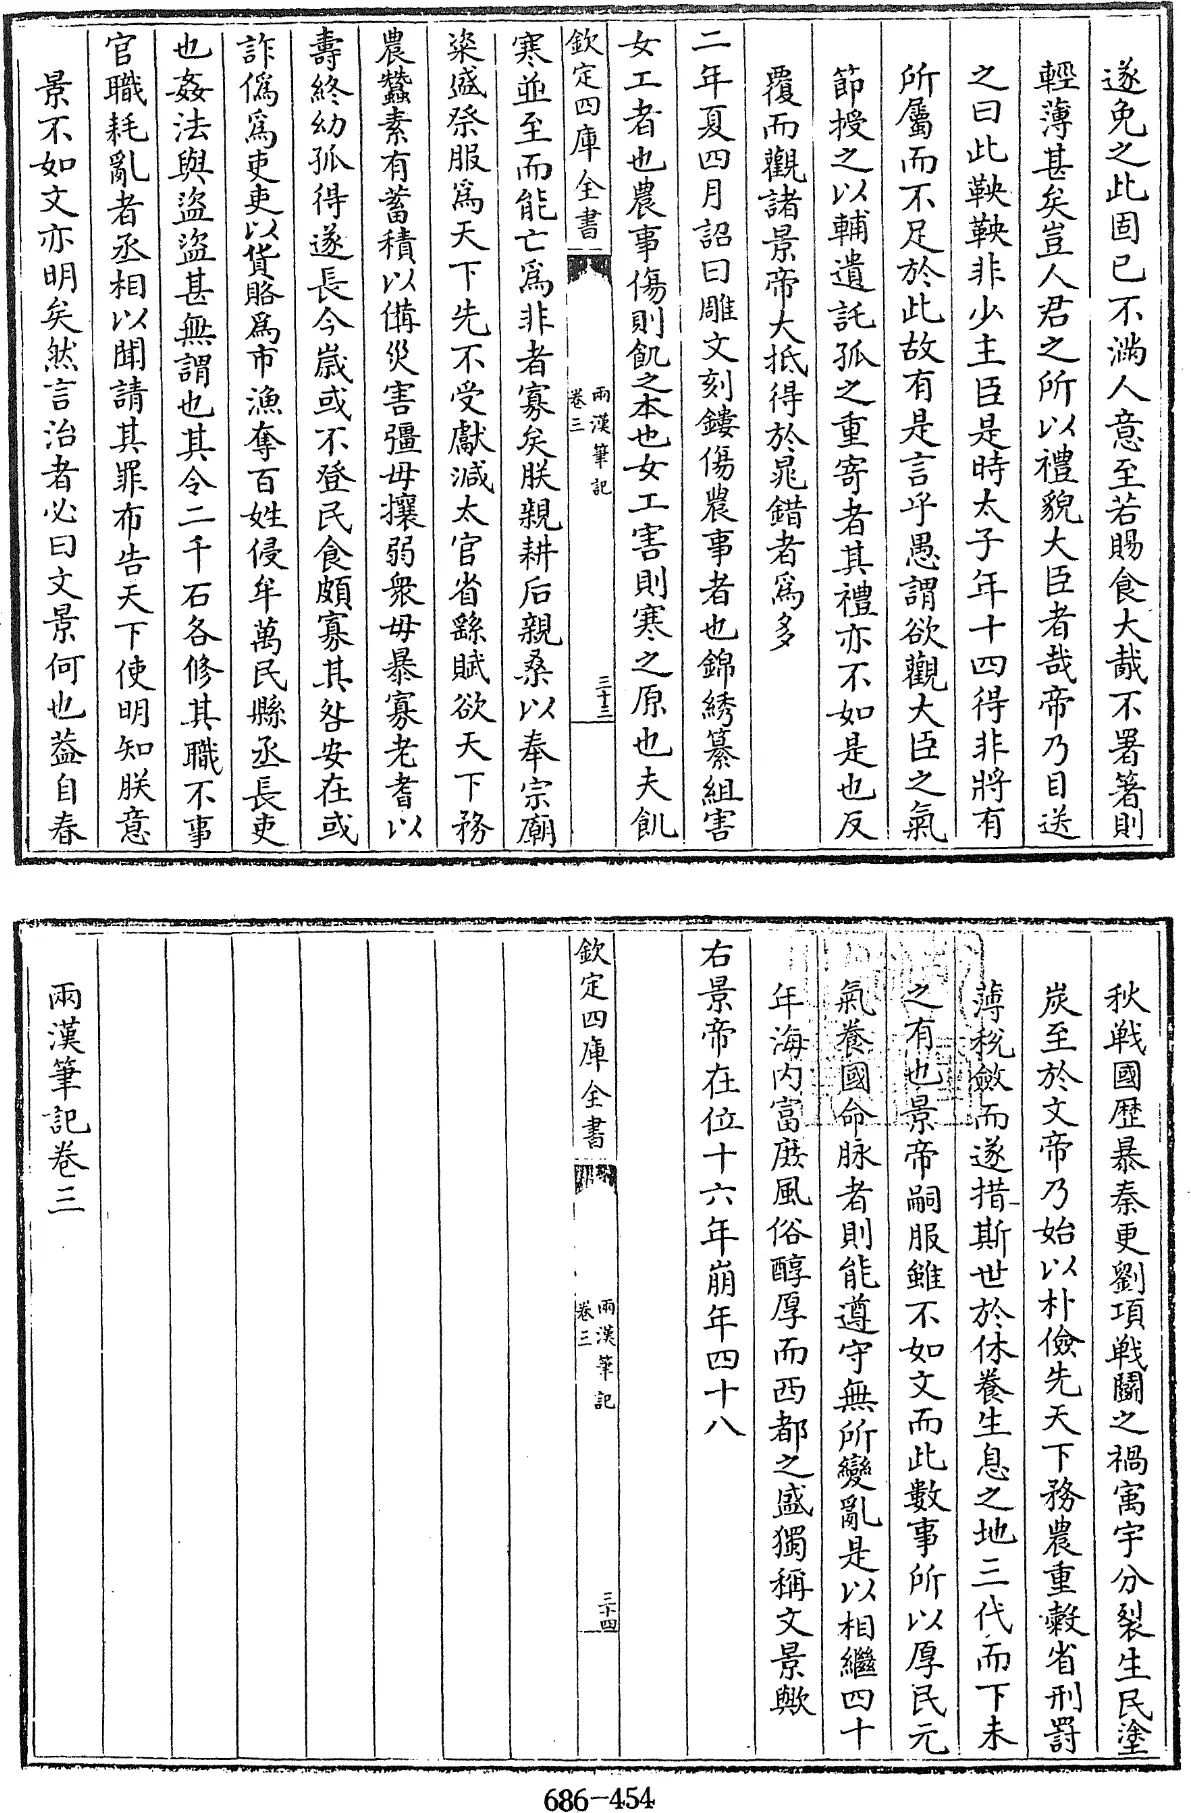 遂免之此固已不滿人意至若賜食大胾不署箸則
輕薄甚矣豈人君之所以禮貌大臣者哉帝乃目送
之曰此鞅鞅非少主臣是時太子年十四得非將有
所屬而不足於此故有是言乎愚謂欲觀大臣之氣
節授之以輔遺託孤之重寄者其禮亦不如是也反
覆而觀諸景帝大抵得於晁錯者為多
二年夏四月詔曰雕文刻鏤傷農事者也錦綉纂組害
女工者也農事傷則飢之本也女工害則寒之原也夫飢
欽定四庫全書
兩漢筆記
卷三
三十三
寒並至而能亡為非者寡矣朕親耕后親桑以奉宗廟
粢盛祭服為天下先不受獻減太官省繇賦欲天下務
農蠶素有蓄積以備災害彊毋攘弱衆毋暴寡老耆以
壽終幼孤得遂長今歲或不登民食頗寡其咎安在或
詐偽為吏吏以貨賂為市漁奪百姓侵牟萬民縣丞長吏
也姦法與盜盜甚無謂也其令二千石各修其職不事
官職耗亂者丞相以聞請其罪布告天下使明知朕意
景不如文亦明矣然言治者必曰文景何也葢自春
秋戰國歴暴秦更劉項戰鬭之禍寓宇分裂生民塗
炭至於文帝乃始以朴儉先天下務農重穀省刑罰
薄稅斂而遂措斯世於休養生息之地三代而下未
之有也景帝嗣服雖不如文而此數事所以厚民元
氣養國命脉者則能遵守無所變亂是以相繼四十
年海内富庶風俗醇厚而西都之盛獨稱文景歟
右景帝在位十六年崩年四十八
欽定四庫全書
兩漢筆記
卷三
三十四
兩漢筆記卷三
686-454